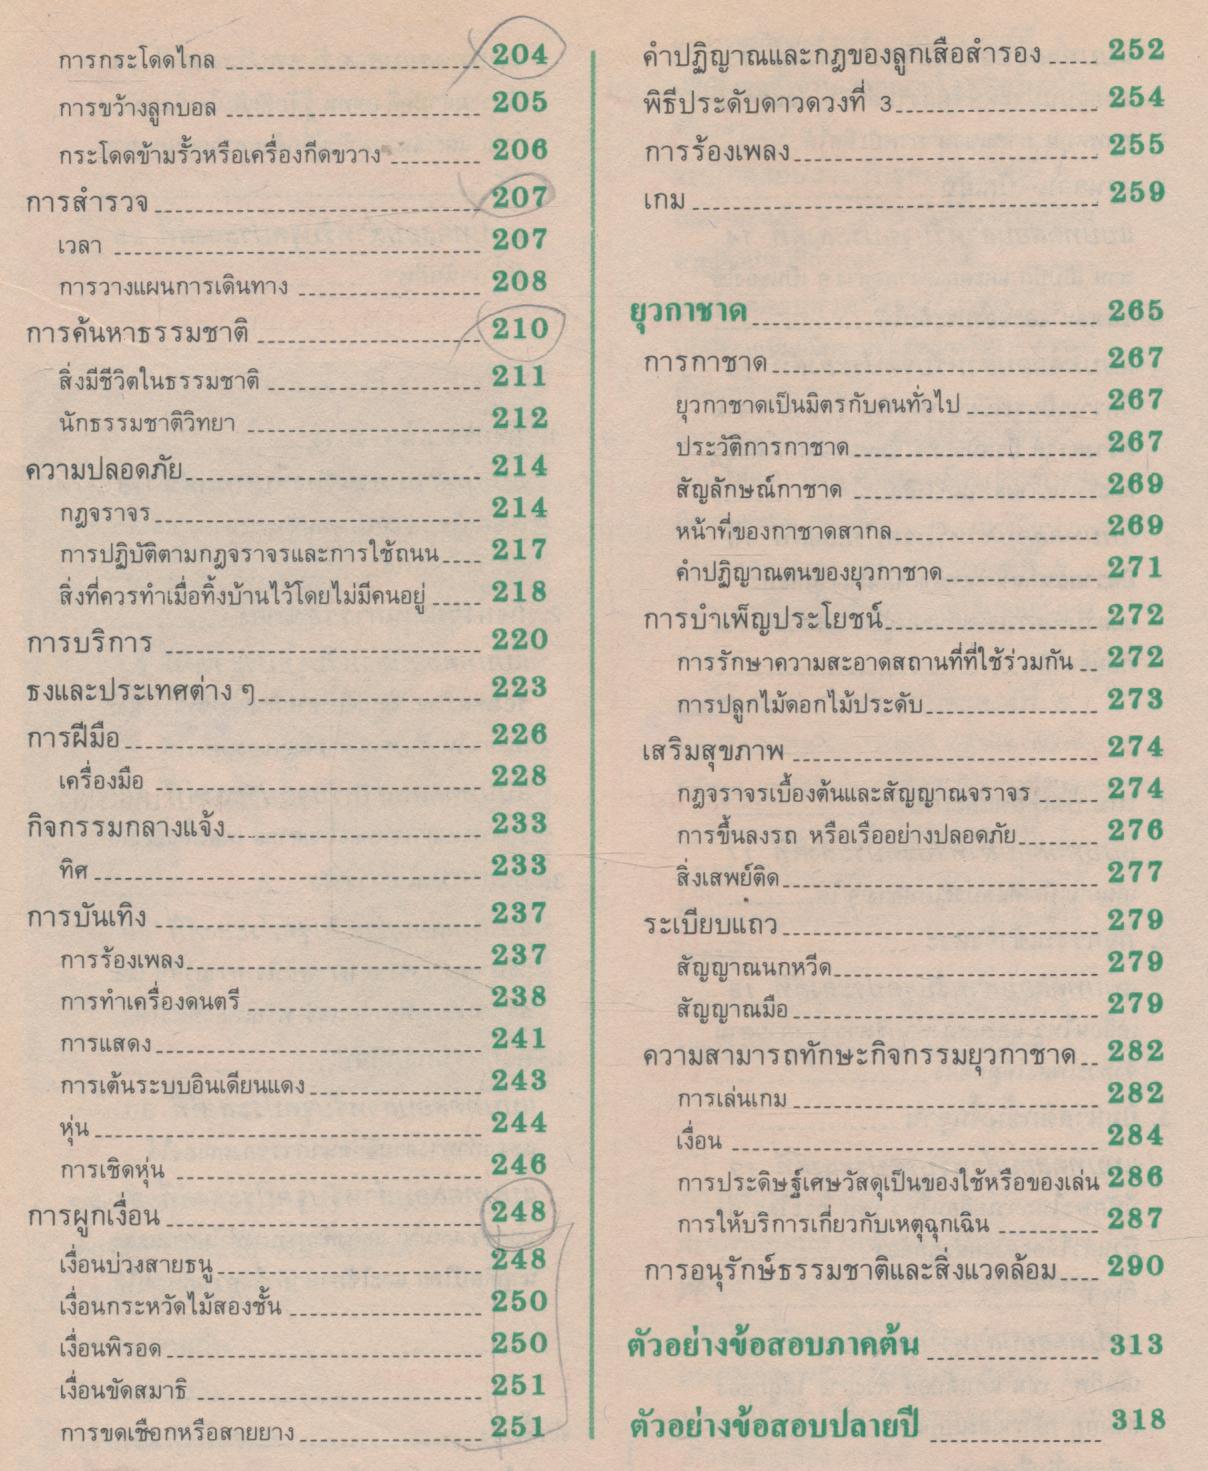 การกระโดดไกล 204
การขว้างลูกบอล 205
กระโดดข้ามรั้วหรือเครื่องกีดขวาง 206
การสำรวจ 207
เวลา 207
การวางแผนการเดินทาง 208
การค้นหาธรรมชาติ 210
สิ่งมีชีวิตในธรรมชาติ 211
นักธรรมชาติวิทยา 212
ความปลอดภัย 214
กฎจราจร 214
การปฏิบัติตามกฎจราจรและการใช้ถนน 217
สิ่งที่ควรทำเมื่อทิ้งบ้านไว้โดยไม่มีคนอยู่ 218
การบริการ 220
ธงและประเทศต่าง ๆ 223
การฝีมือ 226
เครื่องมือ 228
กิจกรรมกลางแจ้ง 233
ทิศ 233
การบันเทิง 237
การร้องเพลง 237
การทำเครื่องดนตรี 238
การแสดง 241
การเต้นระบบอินเดียนแดง 243
หุ่น 244
การเชิดหุ่น 246
การผูกเงื่อน 248
เงื่อนบ่วงสายธนู 248
เงื่อนกระหวัดไม้สองชั้น 250
เงื่อนพิรอด 250
เงื่อนขัดสมาธิ 251
การขดเชือกหรือสายยาง 251
คำปฏิญาณและกฎของลูกเสือสำรอง 252
พิธีประดับดาวดวงที่ 3 254
การร้องเพลง 255
เกม 259
ยุวกาชาด 265
การกาชาด 267
ยุวกาชาดเป็นมิตรกับคนทั่วไป 267
ประวัติการกาชาด 267
สัญลักษณ์กาชาด 269
หน้าที่ของกาชาดสากล 269
คำปฏิญาณตนของยุวกาชาด 271
การบำเพ็ญประโยชน์ 272
การรักษาความสะอาดสถานที่ที่ใช้ร่วมกัน 272
การปลูกไม้ดอกไม้ประดับ 273
เสริมสุขภาพ 274
กฎจราจรเบื้องต้นและสัญญาณจราจร 274
การขึ้นลงรถ หรือเรืออย่างปลอดภัย 276
สิ่งเสพย์ติด 277
ระเบียบแถว 279
สัญญาณนกหวีด 279
สัญญาณมือ 279
ความสามารถทักษะกิจกรรมยุวกาชาด 282
การเล่นเกม 282
เงื่อน 284
การประดิษฐ์เศษวัสดุเป็นของใช้หรือของเล่น 286
การให้บริการเกี่ยวกับเหตุฉุกเฉิน 287
การอนุรักษ์ธรรมชาติและสิ่งแวดล้อม 290
ตัวอย่างข้อสอบภาคต้น 313
ตัวอย่างข้อสอบปลายปี 318